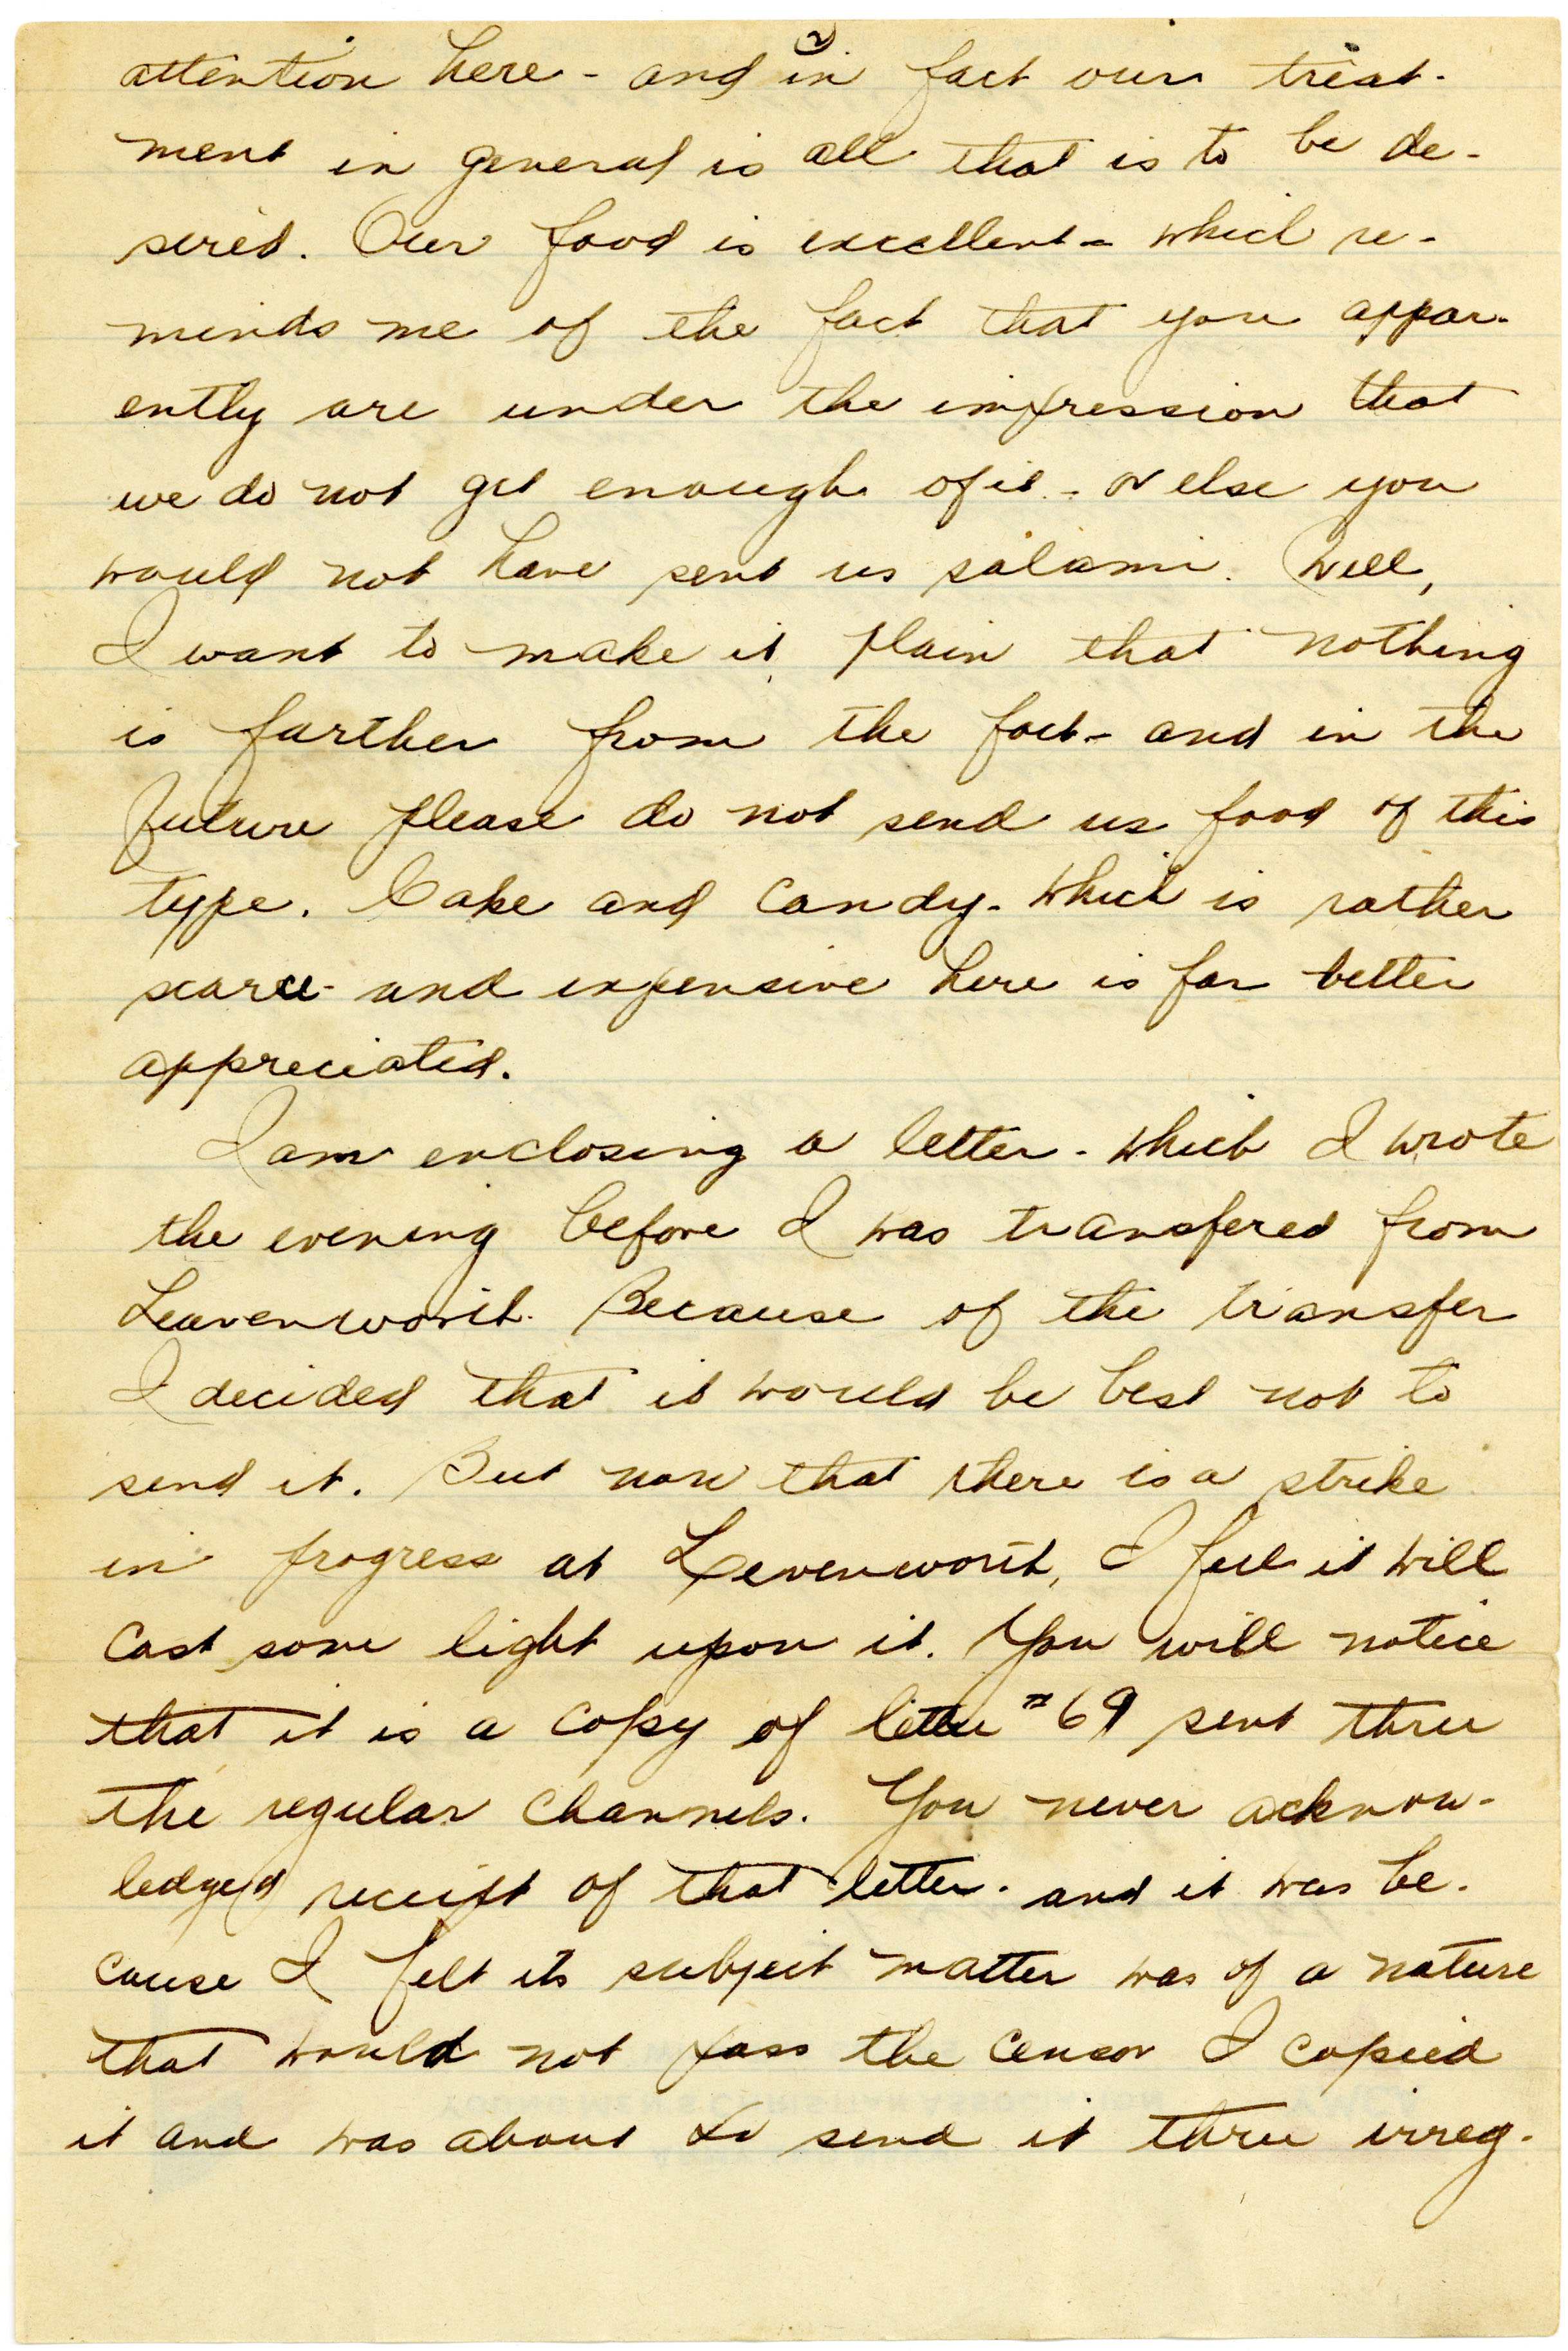 2
attention here - and in fact our treat-
ment in general is all that is to be de-
sired. Our food is excellent - which re-
minds me of the fact that you appar-
ently are under the impression that
we do not get enough of it - or else you
would not have sent us salami. Well,
I want to make it plain that nothing
is farther from the fact - and in the
future please do not send us food of this
type. Cake and candy - which is rather
scarce - and expensive here is far better
appreciated.
I am enclosing a letter - which I wrote
the evening before I was transfered from
Leavenworth. Because of the transfer
I decided that it would be best not to
send it. But now that there is a strike
in progress at Levenworth, I feel it will
cast some light upon it. You will notice
that it is a copy of letter #69 sent thru
the regular channels. You never acknow-
ledged receipt of that letter - and it was be-
cause I felt its subject matter was of a nature
that would not pass the censor I copied
it and was about to send it thru irreg-